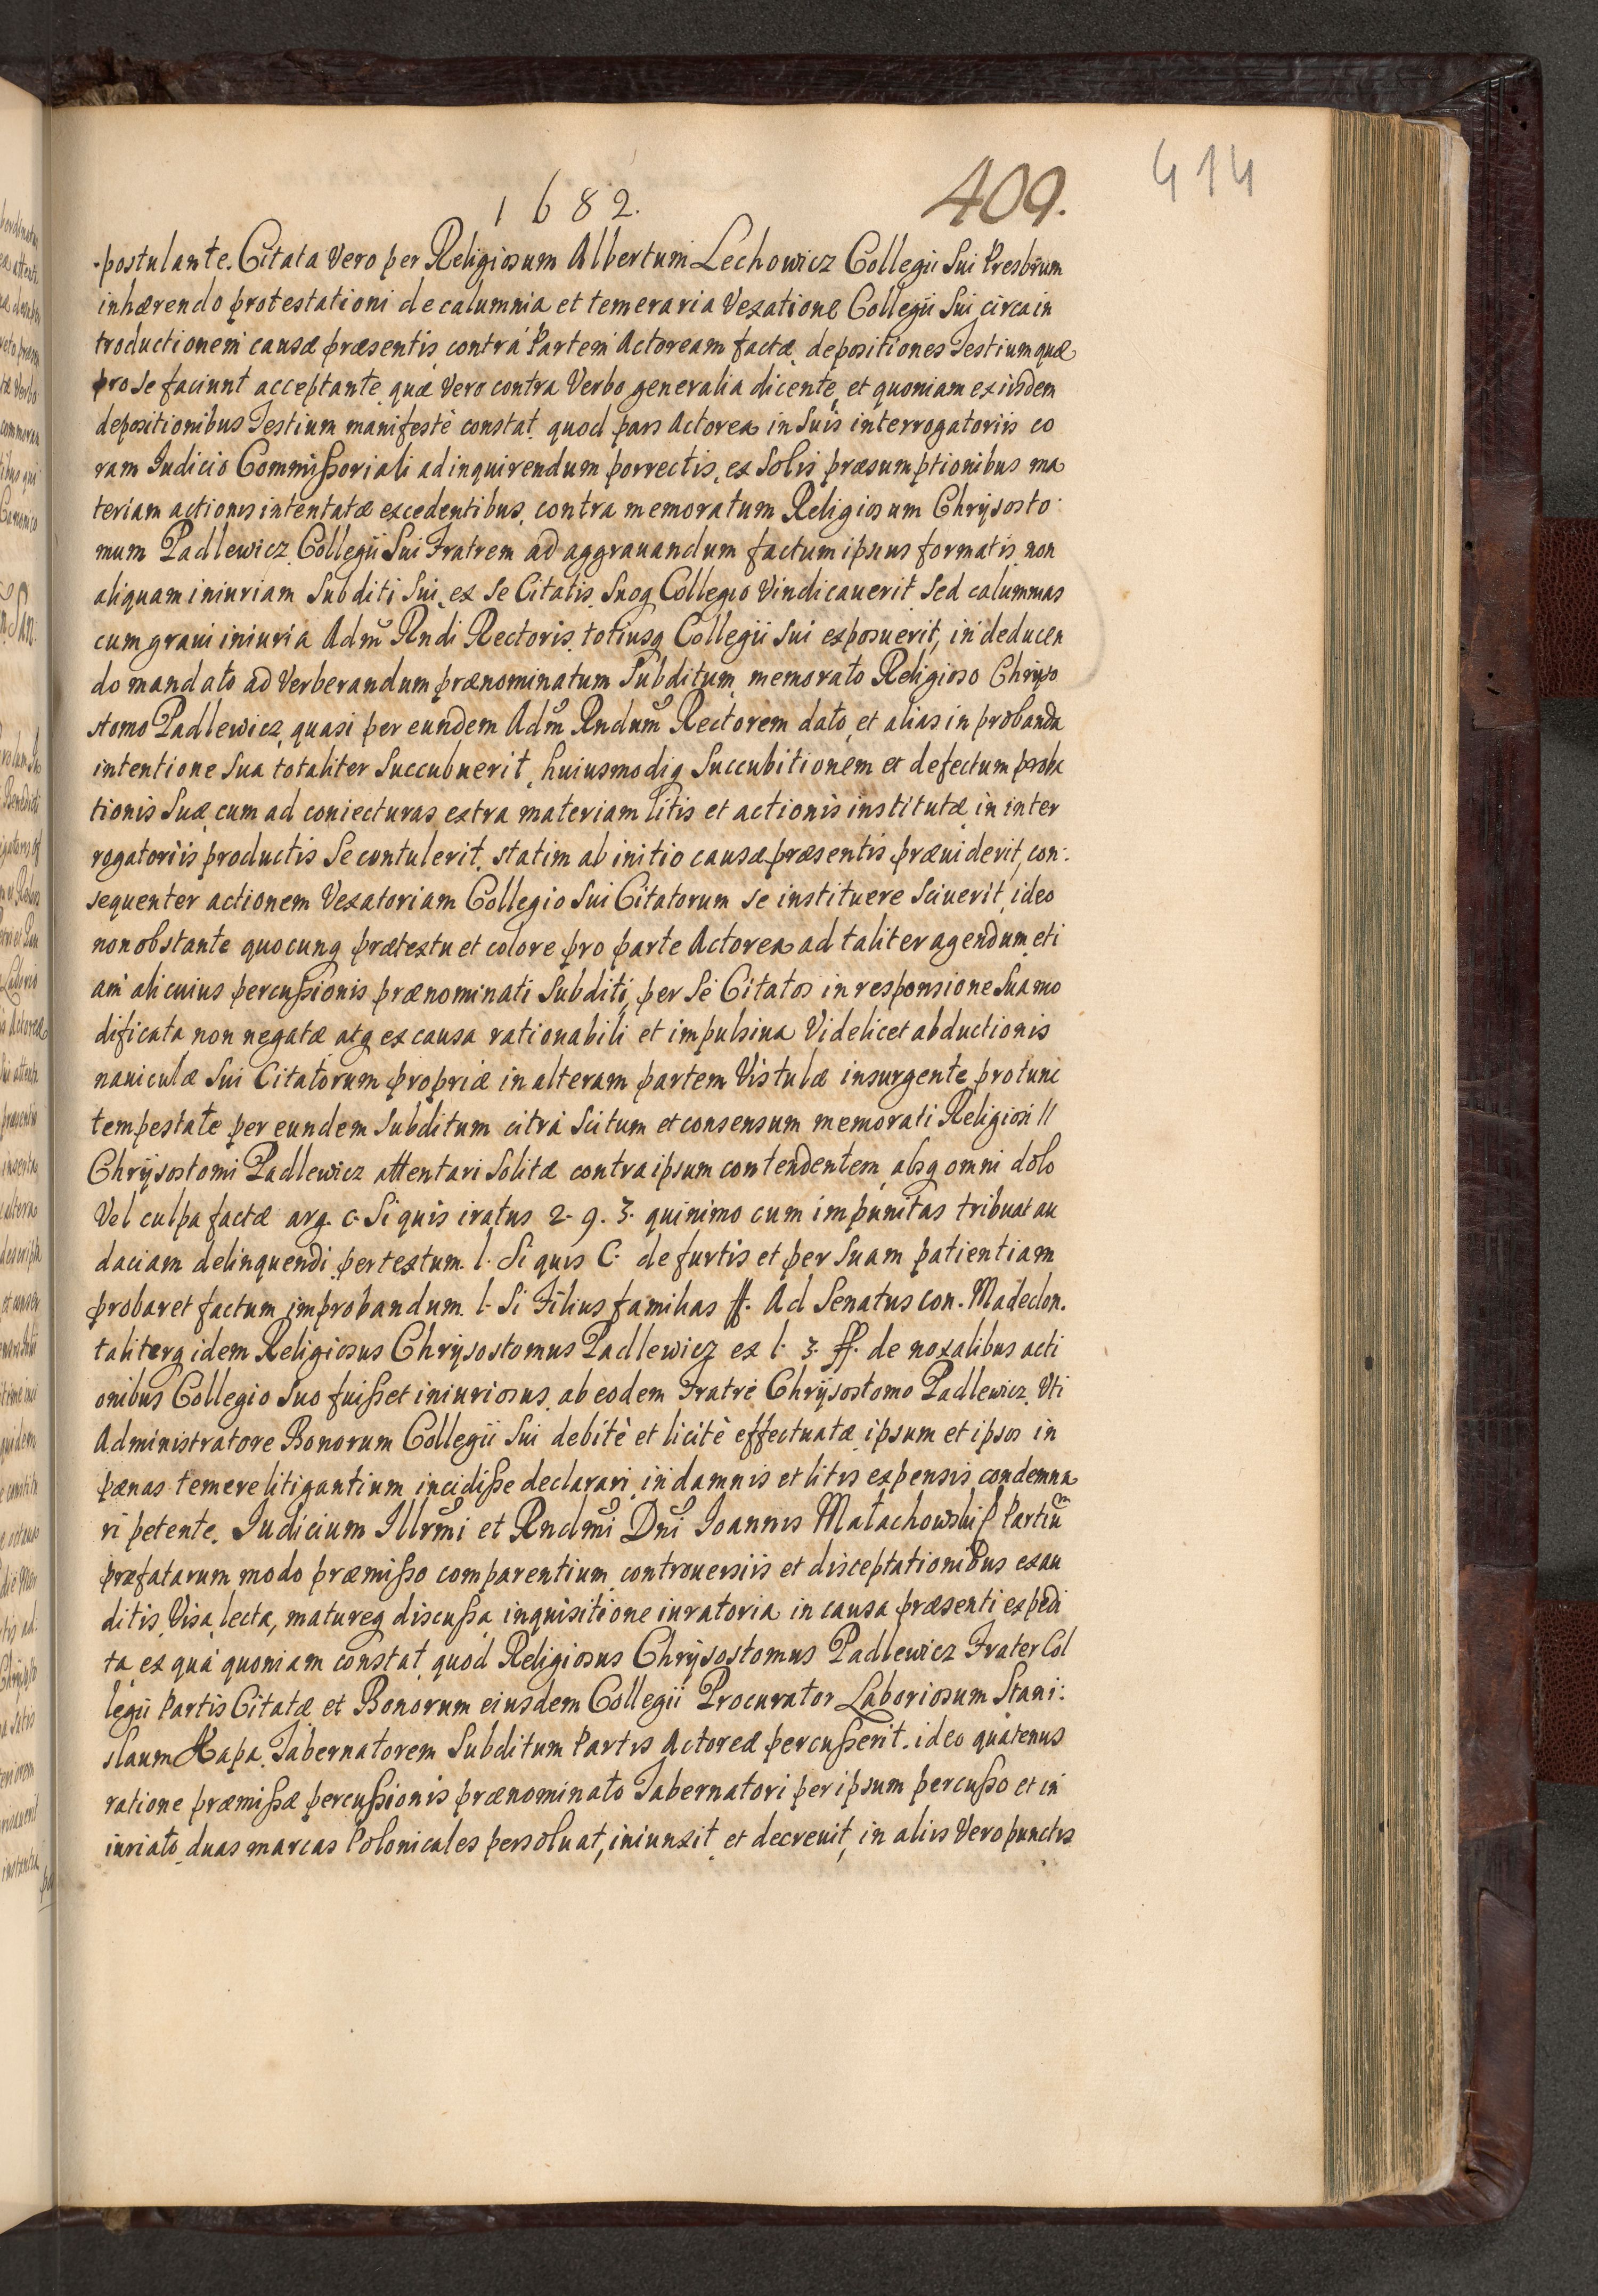 414
1682. 409.
postulante. Citata Vero per Religiosum Albertum Lechowicz Collegii Sui Presbrum
inhærendo protestationi de calumnia et temeraria Vexatione Collegii Sui, circa in
troductionem causæ præsentis contra Partem Actoream factæ, depositiones Testium quæ
pro se faciunt acceptante, quæ Vero contra Verbo generalia dicente, et quoniam ex iisdem
depositionibus Testium manifestè constat, quod pars Actorea in Suis interrogatoriis co
ram Iudicio Commißoriali ad inquirendum porrectis, ex Solis præsumptionibus ma
teriam actionis intentatæ excedentibus, contra memoratum Religiosum Chrysosto
mum Padlewicz Collegii Sui Fratrem ad aggrauandum factum ipsius formatis, non
aliquam iniuriam Subditi Sui, ex Se Citatis, Suoq Collegio Vindicauerit, Sed calumnias
cum graui iniuria Adm̃ Rndi Rectoris, totiusq Collegii Sui exposuerit, in deducen
do mandato ad Verberandum prænominatum Subditum, memorato Religioso Chryso
stomo Padlewicz, quasi per eundem Adm̃ Rndum̃ Rectorem dato, et alias in probanda
intentione Sua totaliter Succubuerit, huiusmodiq Succubitionem et defectum proba
tionis Suæ, cum ad coniecturas extra materiam litis et actionis institutæ, in inter
rogatoriis productis Se contulerit, statim ab initio causæ præsentis præuiderit, con:
sequenter actionem Vexatoriam Collegio Sui Citatorum se instituere Sciuerit, ideo
non obstante quocunq prætextu et colore pro parte Actorea ad taliter agendum, eti
am alicuius percußionis prænominati Subditi, per Se Citatos in responsione Sua mo
dificata non negatæ atq ex causa rationabili et impulsiua Videlicet abductionis
nauiculæ Sui Citatorum propriæ in alteram partem Vistulæ insurgente protunc
tempestate per eundem Subditum citra Scitum et consensum memorati Religiosi //
Chrysostomi Padlewicz attentari Solitæ contra ipsum contendentem, absq omni dolo
Vel culpa factæ arg. c. Si quis iratus 2. q. 3. quinimo cum impunitas tribuat au
daciam delinquendi, per textum l. Si quis C. de furtis et per Suam patientiam
probaret factum improbandum l. Si Filius familias ff. Ad Senatus con. Madedon.
taliterq idem Religiosus Chrysostomus Padlewicz ex l. 3. ff. de noxalibus acti
onibus Collegio Suo fuißet iniuriosus, ab eodem Fratre Chrysostomo Padlewicz, Vti
Administratore Bonorum Collegii Sui debitè et licitè effectuatæ, ipsum et ipsos in
pænas temere litigantium incidiße declarari, in damnis et litis expensis condemna
ri petente. Iudicium Illrm̃i et Rndm̃i Dñi Ioannis Małachowski P Partiũm
præfatarum modo præmißo comparentium, controuersiis et disceptationibus exau
ditis, Visa, lecta, matureq discußa inquisitione iuratoria in causa præsenti expedi
ta, ex qua quoniam constat, quod Religiosus Chrysostomus Padlewicz Frater Col
legii Partis Citatæ et Bonorum eiusdem Collegii Procurator Laboriosum Stani:
slaum Hapa Tabernatorem Subditum Partis Actoreæ percußerit, ideo quatenus
ratione præmißæ percußionis prænominato Tabernatori per ipsum percußo et in
iuriato, duas marcas Polonicales persoluat, iniunxit, et decreuit, in aliis Vero punctis